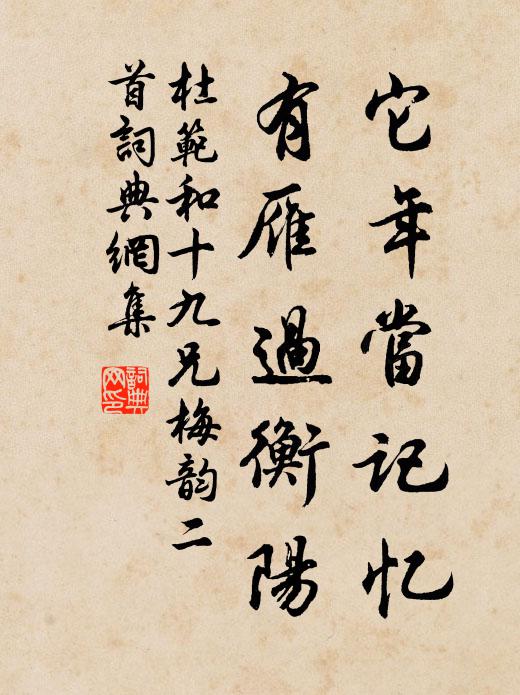 它年當记忆
有雁過衡陽
杜範和十九兄梅韵二
首詞典網集
詞典
网印